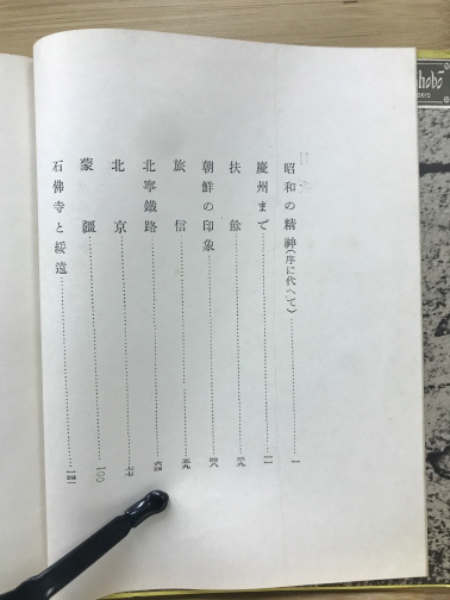 昭和の精神(序に代へて)……一
慶州まで……一一
扶餘……二九
朝鮮の印象……四八
旅信……五九
北寧鐵路……六四
北京……七七
蒙疆……一〇〇
石佛寺と綏遠……一四二